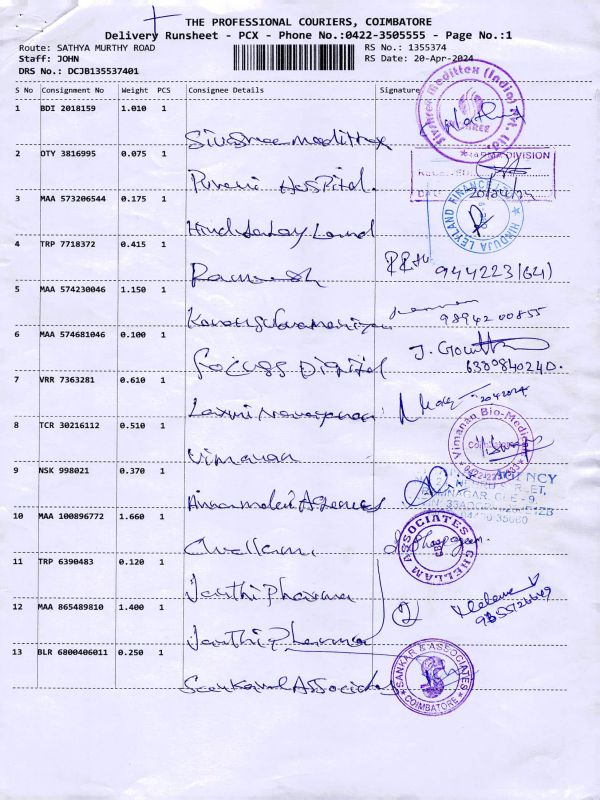 THE PROFESSIONAL COURIERS, COIMBATORE
Delivery Runsheet - PCX - Phone No.:0422-3505555 - Page No.:1
Route: SATHYA MURTHY ROAD
Staff: JOHN
DRS No.: DCJB135537401
RS No.: 1355374
RS Date: 20-Apr-2024
S No Consignment No Weight PCS Consignee Details Signature
1 BDI 2018159 1.010 1
Sivashree Medittex
2 OTY 3816995 0.075 1
Hospital
PHARMA DIVISION
20/04/24
3 MAA 573206544 0.175 1
Hinduja Leyland
HINDUJA LEYLAND FINANCE
4 TRP 7718372 0.415 1
Ramesh
5 MAA 574230046 1.150 1
9894200855
6 MAA 574681046 0.100 1
Focuss Digital
J.
7 VRR 7363281 0.610 1
Laxmi Narayanan
8 TCR 30216112 0.510 1
Vimanan
Vimanan Bio-Medi
9 NSK 998021 0.370 1
Annamalai Agencies
AGENCY
10 MAA 100896772 1.660 1
Chellam
CHELLAM ASSOCIATES
CBE
11 TRP 6390483 0.120 1
Janthi Pharma
12 MAA 865489810 1.400 1
Janthi Pharma
13 BLR 6800406011 0.250 1
Sankar Associates
SANKAR & ASSOCIATES
COIMBATORE